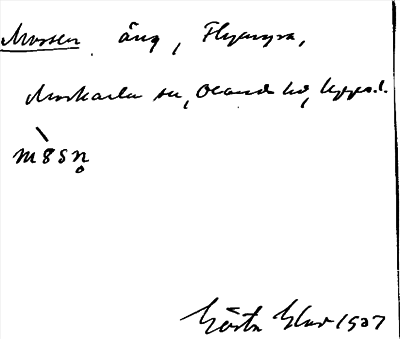 Mossen äng, Flymyra,
Morkarla sn, Olands hd, Upps. l.
m8sn̥
Gösta Elar 1937